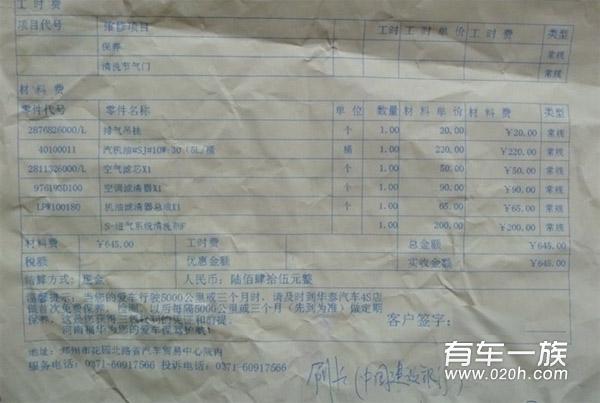 工时费
项目代号 维修项目 工时 工时单价 工时费 类型
保养 常规
清洗节气门 常规
材料费
零件代号 零件名称 单位 数量 材料单价 材料费 类型
2876826000/L 排气吊挂 个 1.00 20.00 ¥20.00 常规
40100011 汽机油#SJ#10W-30（5L/桶 桶 1.00 220.00 ¥220.00 常规
2811326000/L 空气滤芯X1 个 1.00 50.00 ¥50.00 常规
976193D100 空调滤清器X1 个 1.00 90.00 ¥90.00 常规
LPW100180 机油滤清器总成X1 个 1.00 65.00 ¥65.00 常规
S-进气系统清洗剂F 1.00 200.00 ¥200.00 常规
材料费 ¥645.00 工时费 总金额 ¥645.00
税额 优惠金额 实收金额 ¥645.00
结算方式: 现金 人民币: 陆佰肆拾伍元整
温馨提示: 当您的爱车行驶5000公里或三个月时, 请及时到华泰汽车4S店
做首次免费保养、检测, 以后每隔5000公里或三个月（先到为准）做定期
保养, 这是您享受三包权利的保证和前提.
河南福华为您的爱车保驾护航!
客户签字:
地址: 郑州市花园北路省汽车贸易中心院内
服务电话: 0371-60917566 投诉电话: 0371-60917566
刷卡（中国建设银行）
有车一族
www.020h.com